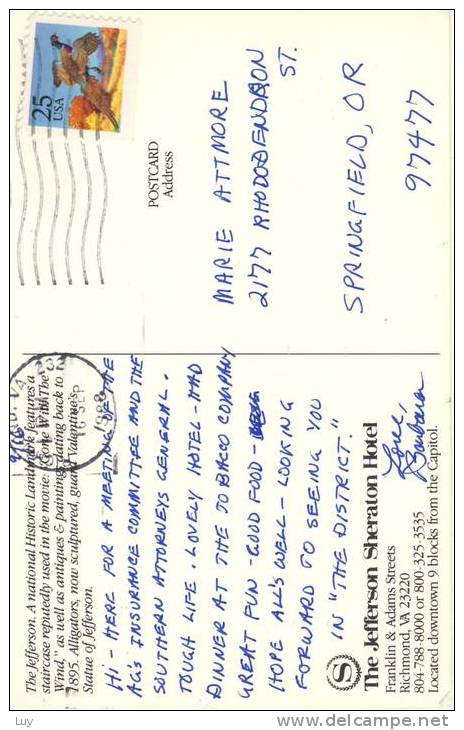 The Jefferson. A national Historic Landmark features a
staircase reputedly used in the movie: "Gone With The
Wind," as well as antiques & paintings dating back to
1895. Alligators, now sculptured, guard Valentine's
Statue of Jefferson.
9/16
HI - HERE FOR A MEETING OF THE
AG'S INSURANCE COMMITTEE AND THE
SOUTHERN ATTORNEYS GENERAL.
TOUGH LIFE. LOVELY HOTEL - HAD
DINNER AT THE TOBACCO COMPANY
GREAT FUN - GOOD FOOD -
HOPE ALL'S WELL - LOOKING
FORWARD TO SEEING YOU
IN "THE DISTRICT."
Love,
Barbara
S
The Jefferson Sheraton Hotel
Franklin & Adams Streets
Richmond, VA 23220
804-788-8000 or 800-325-3535
Located downtown 9 blocks from the Capitol.
VA 232
16 SEP
1988
25
USA
POSTCARD
Address
MARIE ATTMORE
2177 RHODODENDRON
ST.
SPRINGFIELD, OR
97477
Luy
www.delcampe.net